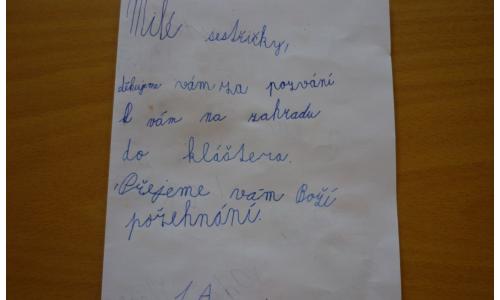 Milé sestřičky,
děkujeme vám za pozvání
k vám na zahradu
do kláštera.
Přejeme vám Boží
požehnání.